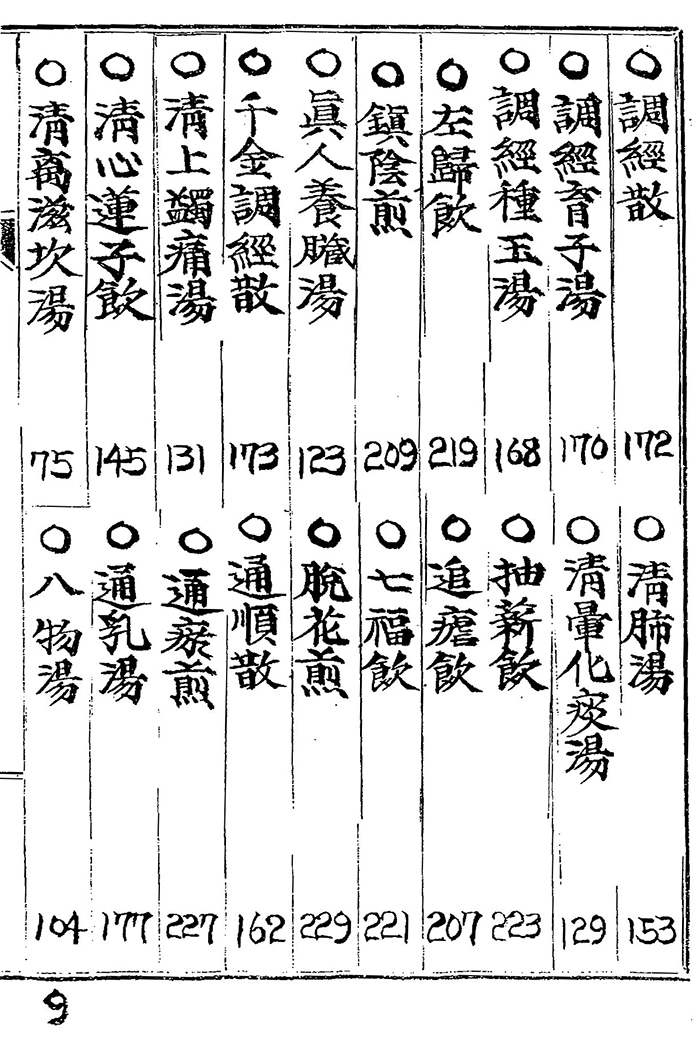 ○調經散 172
○調經育子湯 170
○調經種玉湯 168
○左歸飮 219
○鎭陰煎 209
○眞人養臟湯 123
○千金調經散 173
○淸上蠲痛湯 131
○淸心蓮子飮 145
○淸离滋坎湯 75
○淸肺湯 153
○淸暈化痰湯 129
○抽薪飮 223
○追瘧飮 207
○七福飮 221
○脫花煎 229
○通順散 162
○通瘀煎 227
○通乳湯 177
○八物湯 104
9